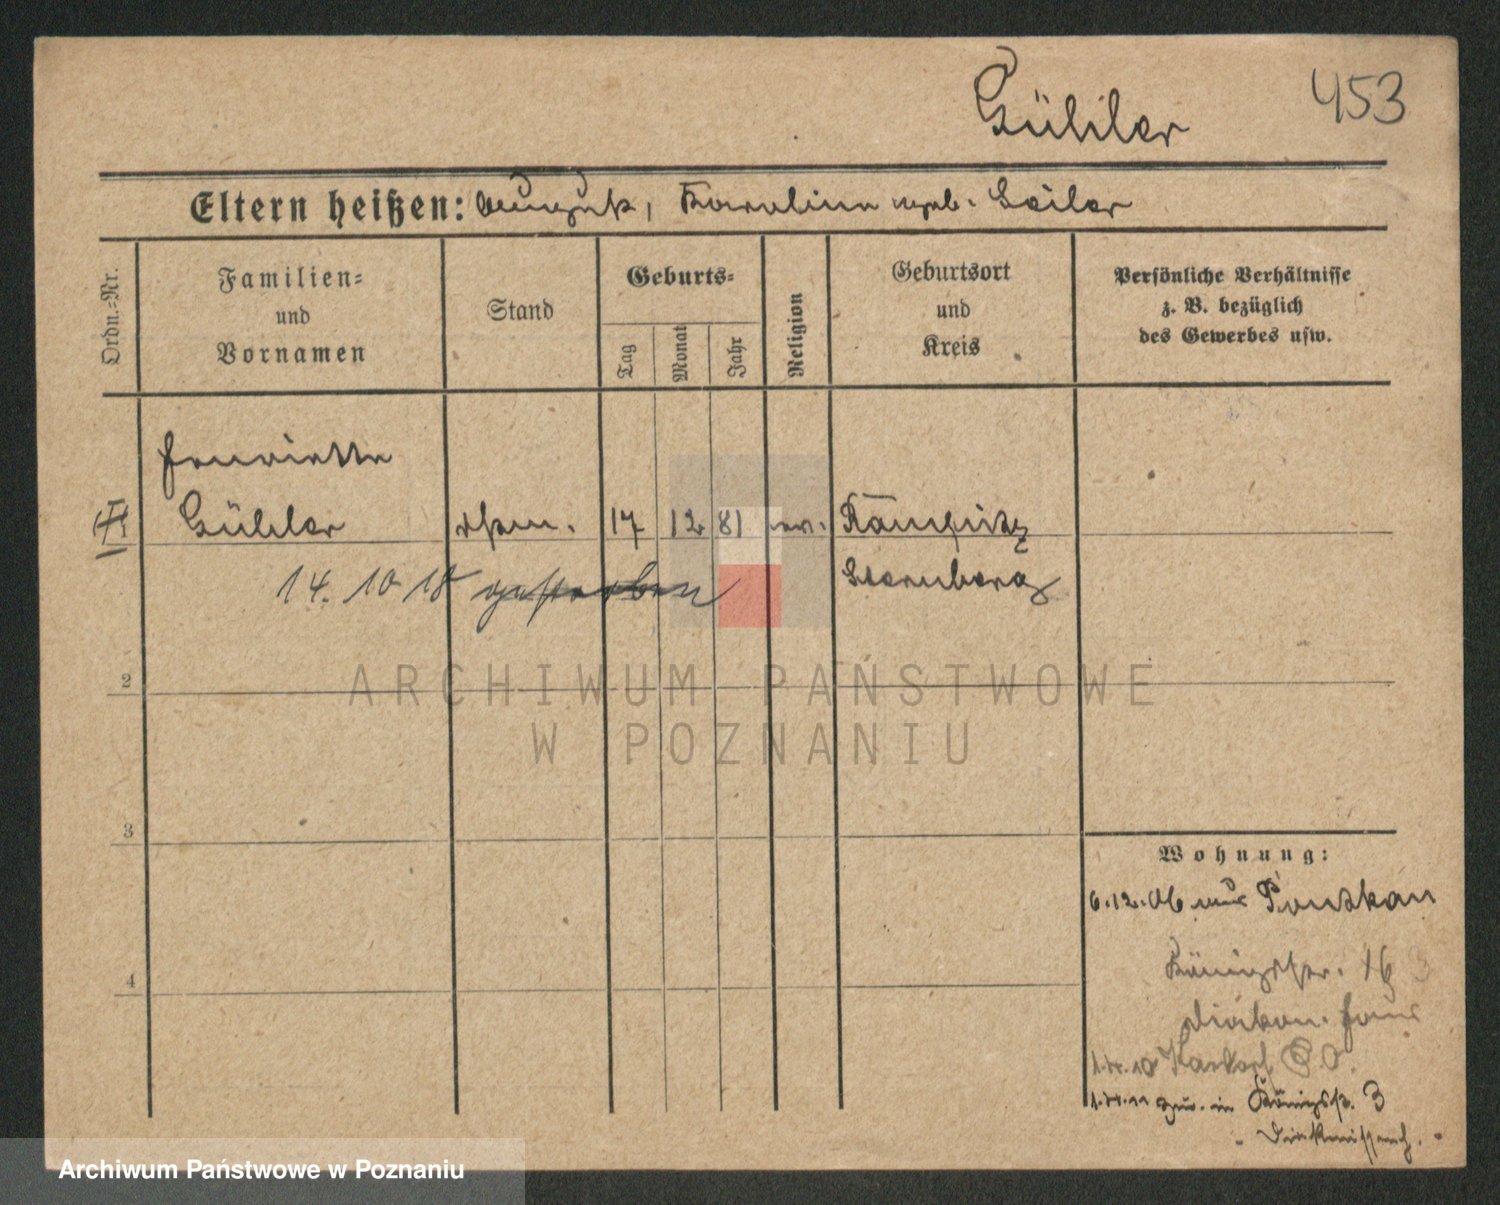 Gühler 453
Eltern heißen: August, Karoline geb. Seiler
Ordn.-Nr.
Familien-
und
Vornamen
Stand
Geburts-
Tag
Monat
Jahr
Religion
Geburtsort
und
Kreis
Persönliche Verhältnisse
z. B. bezüglich
des Gewerbes usw.
Henriette
Gühler 17 12 81 ev.
Sternberg
14. 10 18 gestorben
2
3
4
Wohnung:
6.12.06 aus
Königstr. 16
Diakon. Haus
1.4.10
1.4.11 zur. in Königstr. 3
ARCHIWUM PAŃSTWOWE
W POZNANIU
Archiwum Państwowe w Poznaniu